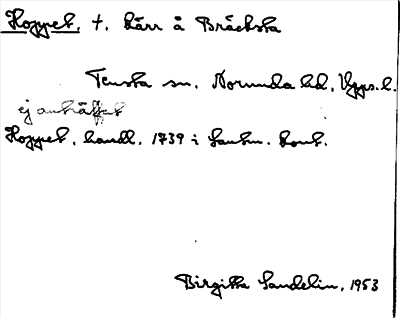 Hoppet, t. kärr å Bräcksta
Tensta sn. Norunda hd, Upps. l.
ej anträffat
Hoppet, handl. 1739 i Lantm. kont.
Birgitta Sandelin, 1953